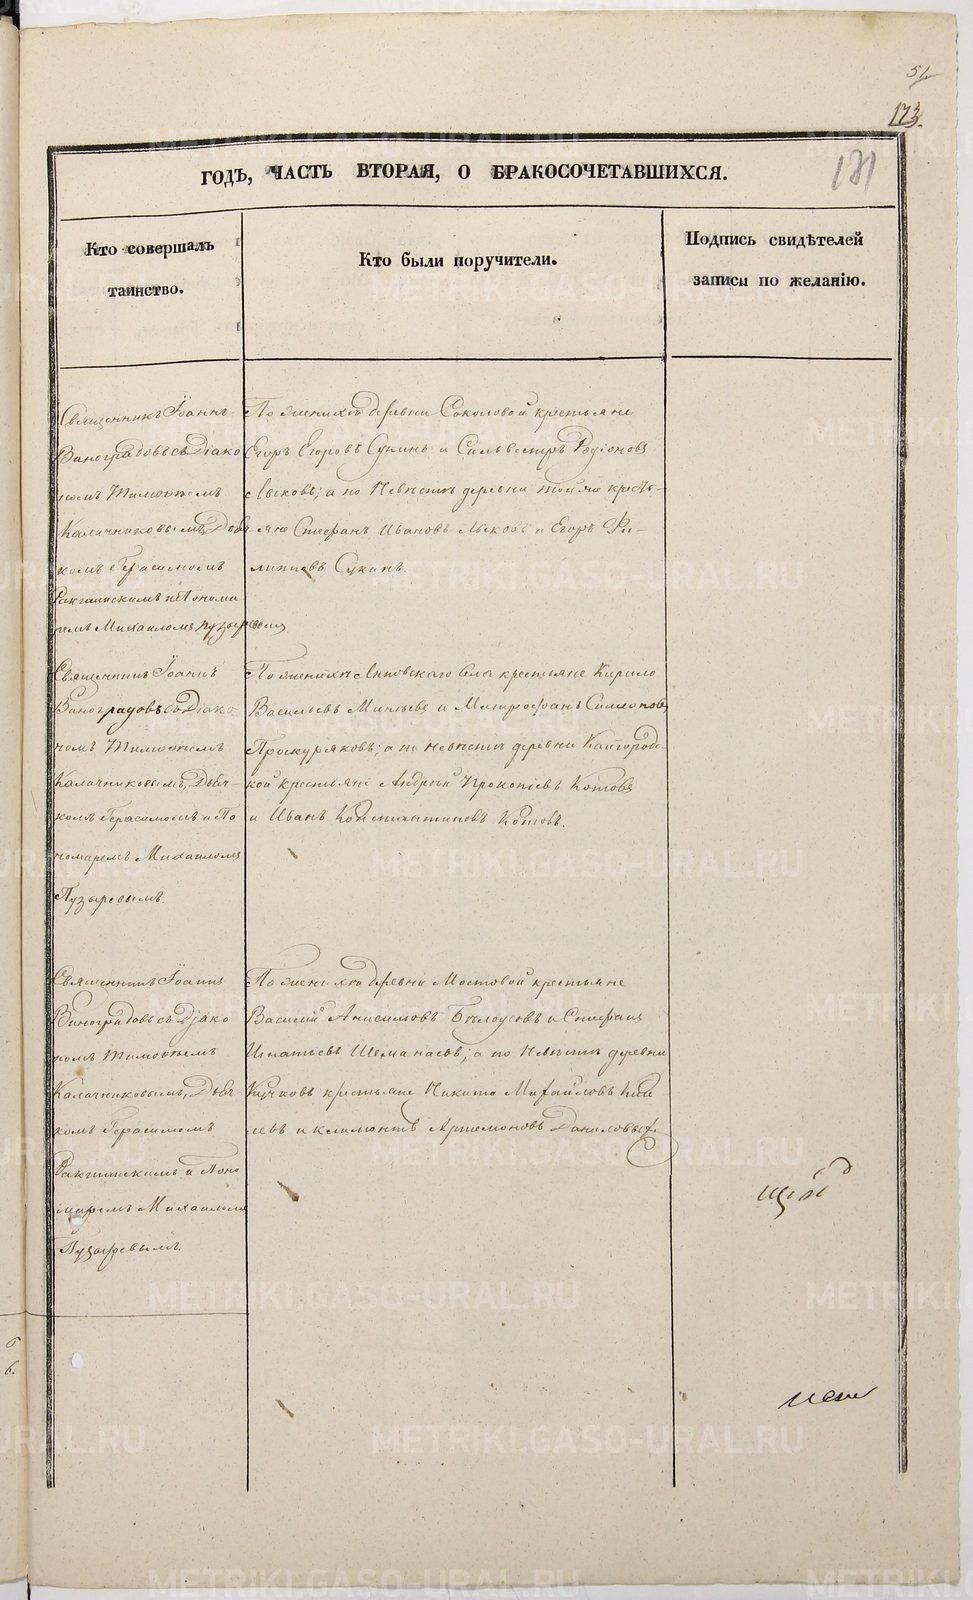 173.
171
ГОДЪ, ЧАСТЬ ВТОРАЯ, О БРАКОСОЧЕТАВШИХСЯ.
Кто совершалъ
таинство.
Кто были поручители.
Подпись свидѣтелей
записи по желанію.
Священникъ Іоаннъ
Виноградовъ съ Діако
номъ Тимоѳеемъ
Калачниковымъ, Дьяч
комъ Герасимомъ
и Понома
ремъ Михаиломъ Пузыревымъ
По женихѣ деревни Соколовой крестьяне
Егоръ Егоровъ Сукинъ и Сильвестръ Родіоновъ
Лысковъ; а по Невѣстѣ деревни той же кресть-
яне Стефанъ Ивановъ Лысковъ и Егоръ Фи-
липповъ Сукинъ.
Священникъ Іоаннъ
Виноградовъ съ Діако
номъ Тимоѳеемъ
Калачниковымъ, Дьяч-
комъ Герасимомъ и По
номаремъ Михаиломъ
Пузыревымъ.
По женихѣ Липовскаго села крестьяне Кирило
Васильевъ Миньевъ и Митрофанъ Симеоновъ
Проскуряковъ; а по невѣстѣ деревни Кайгород-
кой крестьяне Андрей Прокопьевъ Котовъ
и Иванъ Константиновъ Котовъ.
Священникъ Іоаннъ
Виноградовъ съ Діако
номъ Тимоѳеемъ
Калачниковымъ, Дьяч-
комъ Герасимомъ
и Поно
маремъ Михаиломъ
Пузыревымъ.
По женихѣ деревни Мостовой крестьяне
Василій Анисимовъ Бѣлоусовъ и Стефанъ
Игнатьевъ Шеманаевъ; а по Невѣстѣ деревни
Кучковъ крестьяне Никита Михайловъ
и Климентъ Артемоновъ Даниловыхъ
METRIKI.GASO-URAL.RU